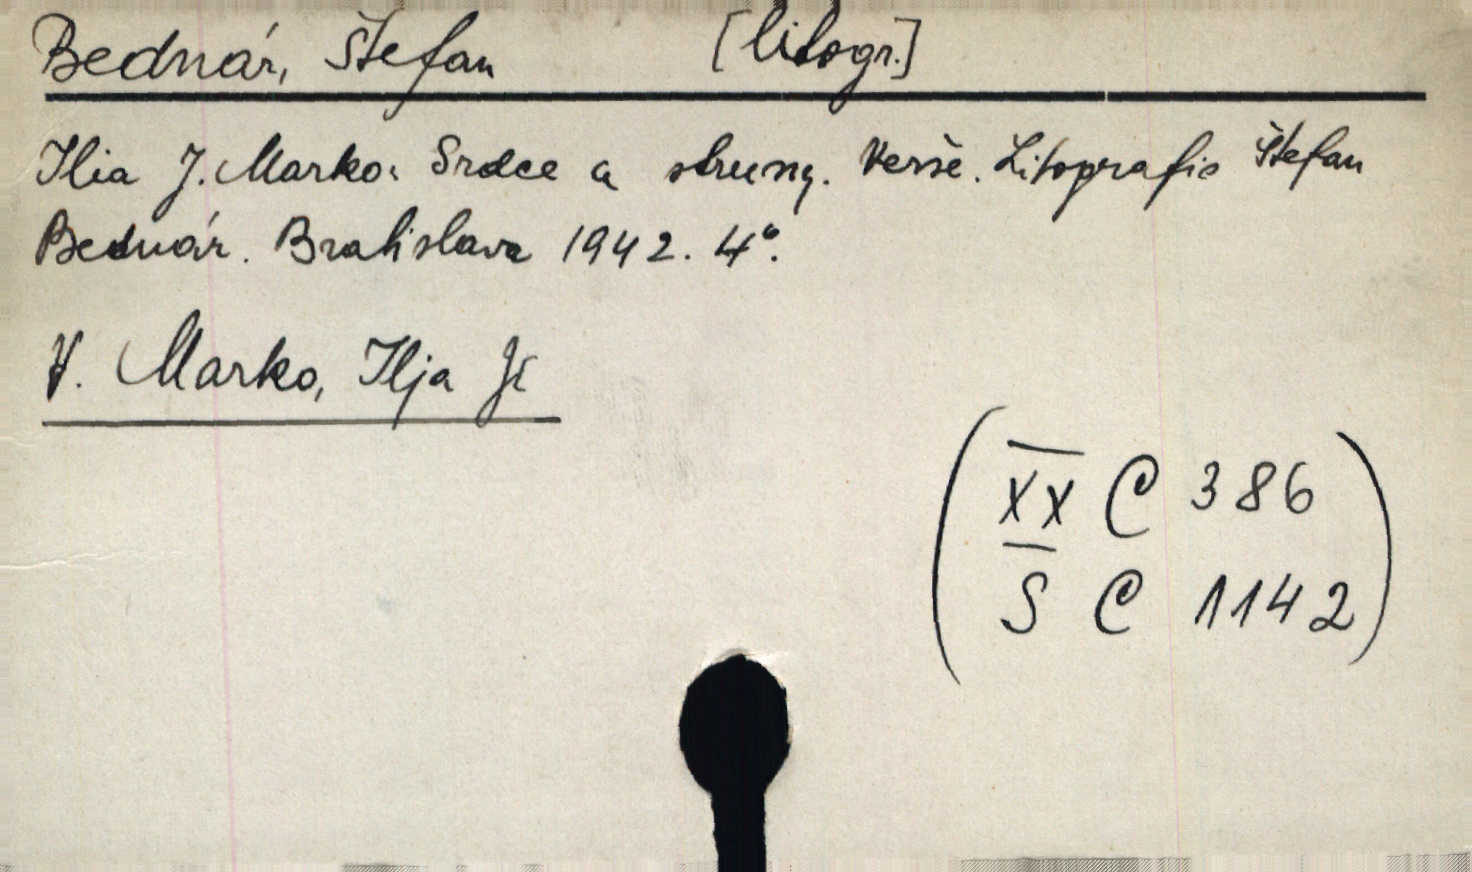 Bednár, Štefan [litogr.]
Ilia J. Marko: Srdce a struny. Verše. Litografie Štefan
Bednár. Bratislava 1942. 4°.
V. Marko, Ilja
(XX C 386
S C 1142)